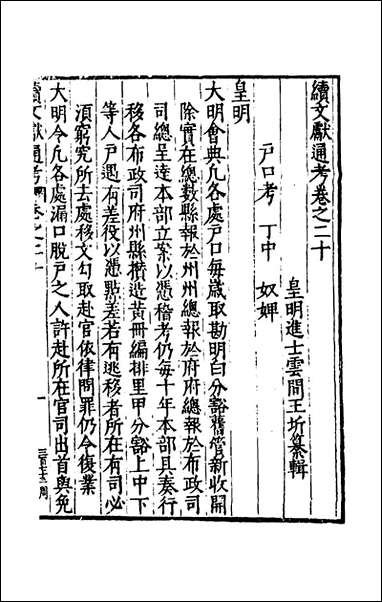 續文獻通考卷之二十
皇明進士雲間王圻纂輯
戸口考 丁中 奴婢
皇明
大明會典凡各處戸口每歲取勘明白分豁舊管新收開
除實在總數縣報於州州總報於府府總報於布政司
司總呈逹本部立案以憑稽考仍每十年本部具奏行
移各布政司府州縣攅造黃冊編排里甲分豁上中下
等人戸遇有差役以憑點差若有逃移者所在有司必
須窮究所去處移文勾取赴官依律問罪仍令復業
大明令凡各處漏口脫戸之人許赴所在官司出首與免
續文獻通考 卷之二十
一